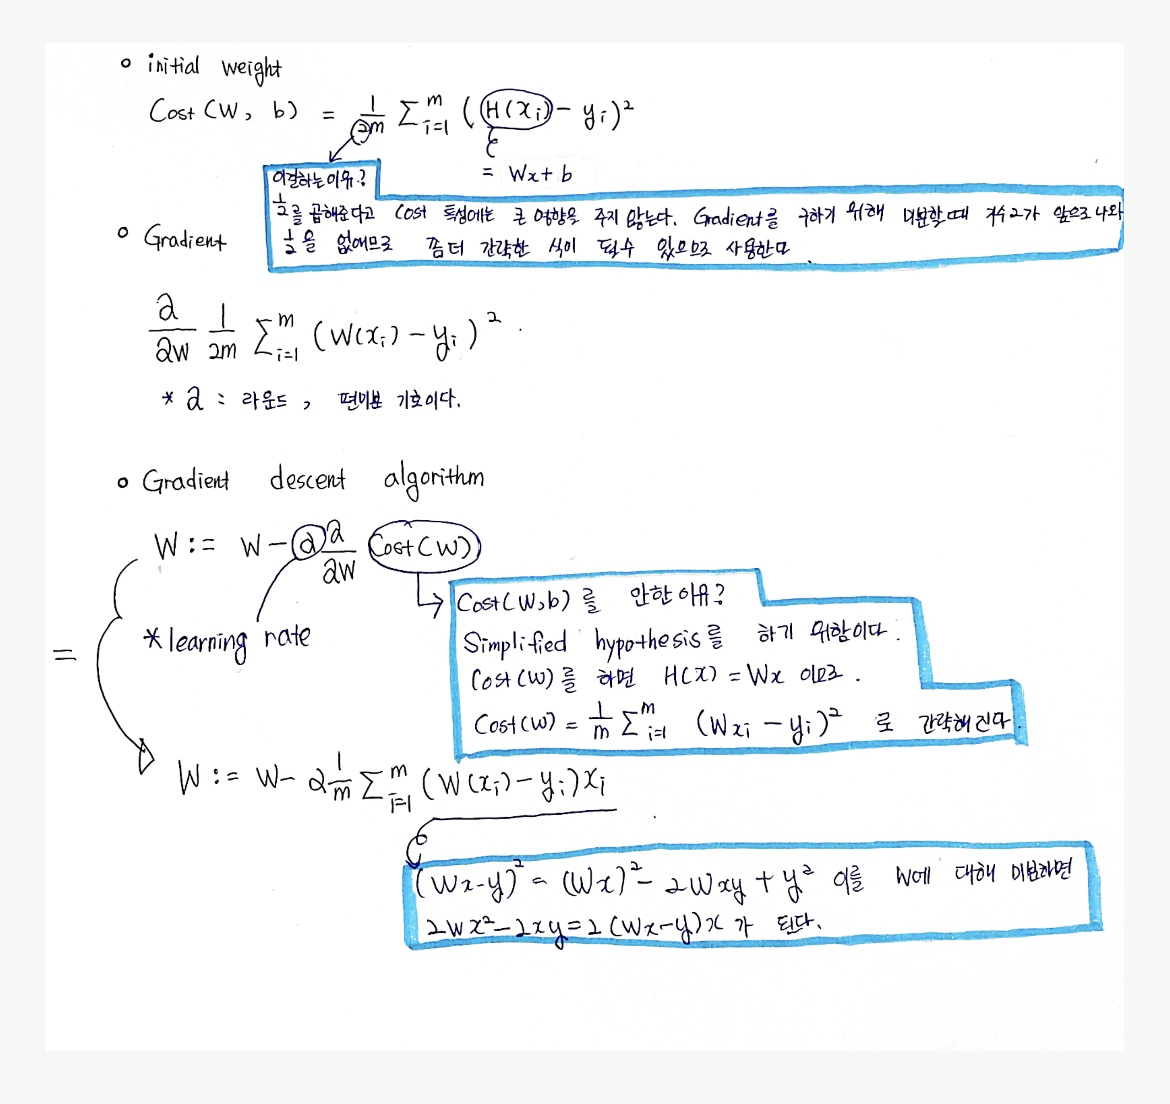 o initial weight
Cost (W, b) = 1/2m Σ_{i=1}^{m} (H(x_i) - y_i)²
= Wx + b
이걸하는이유?
1/2를 곱해준다고 Cost 특성에는 큰 영향을 주지 않는다. Gradient를 구하기 위해 미분할때 지수2가 앞으로 나와
1/2을 없애므로 좀 더 간략한 식이 될수 있으므로 사용한다.
o Gradient
∂/∂W 1/2m Σ_{i=1}^{m} (W(x_i) - y_i)².
* ∂ : 라운드, 편미분 기호이다.
o Gradient descent algorithm
W := W - α ∂/∂W Cost(W)
* learning rate
Cost(W,b)를 안한 이유?
Simplified hypothesis를 하기 위함이다.
Cost(W)를 하면 H(x) = Wx 이므로.
Cost(W) = 1/m Σ_{i=1}^{m} (Wx_i - y_i)² 로 간략해진다.
=
W := W - α 1/m Σ_{i=1}^{m} (W(x_i) - y_i)x_i
(Wx-y)² = (Wx)² - 2Wxy + y² 이를 W에 대해 미분하면
2Wx² - 2xy = 2(Wx-y)x 가 된다.